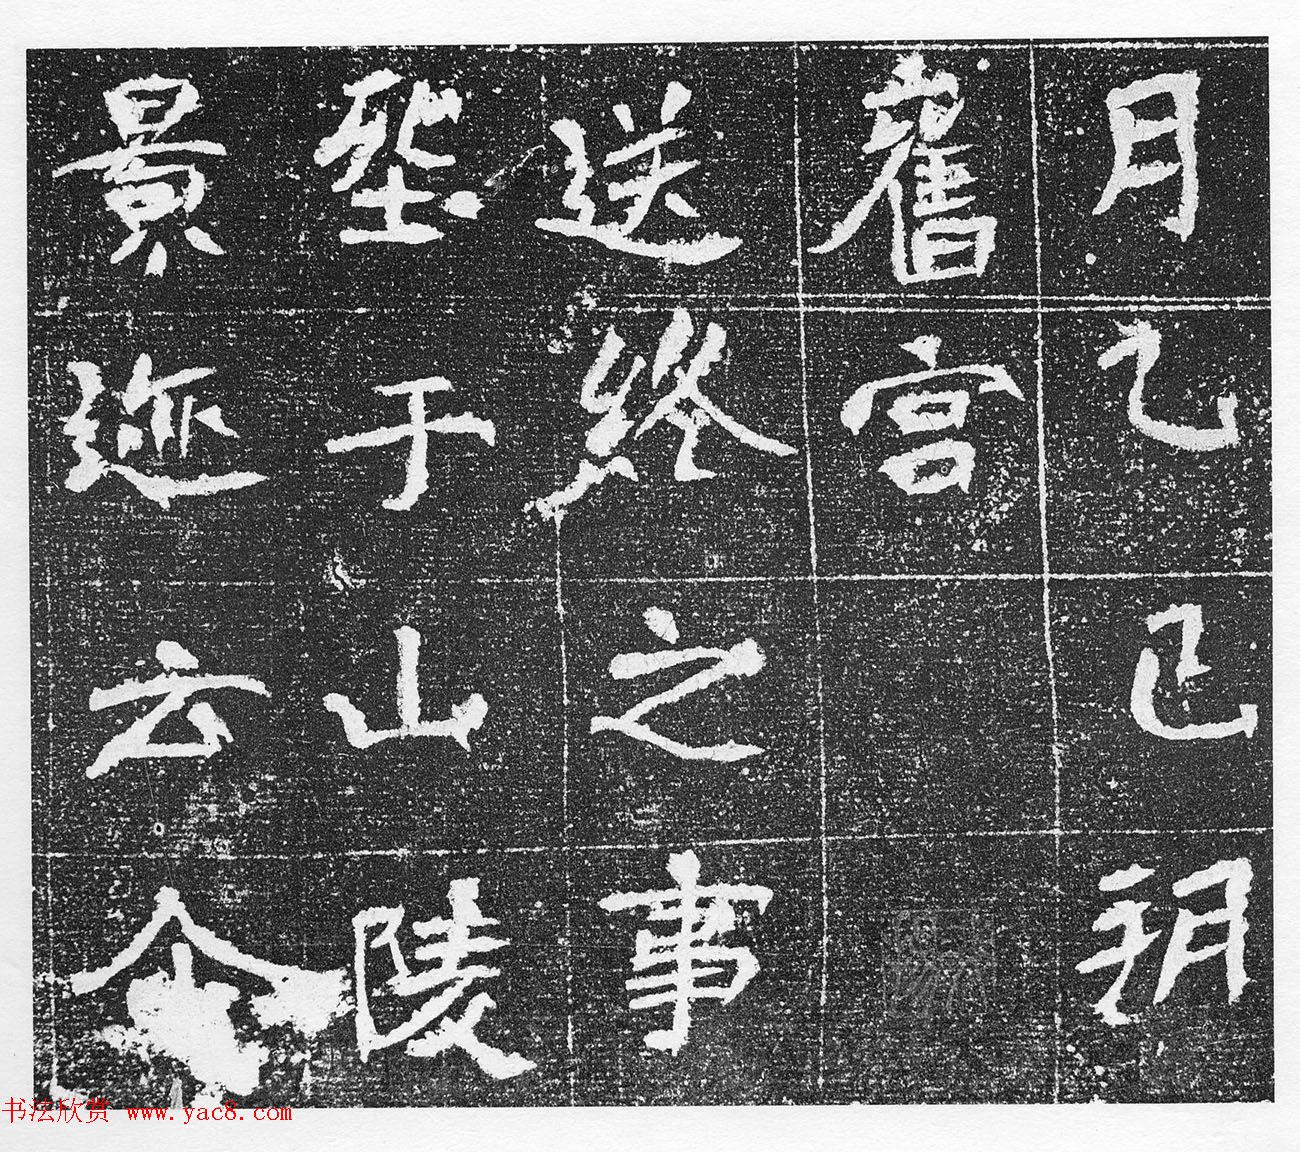 月乙巳朔
舊宮
送終之事
于山陵
景迹云
书法欣赏 www.yac8.com